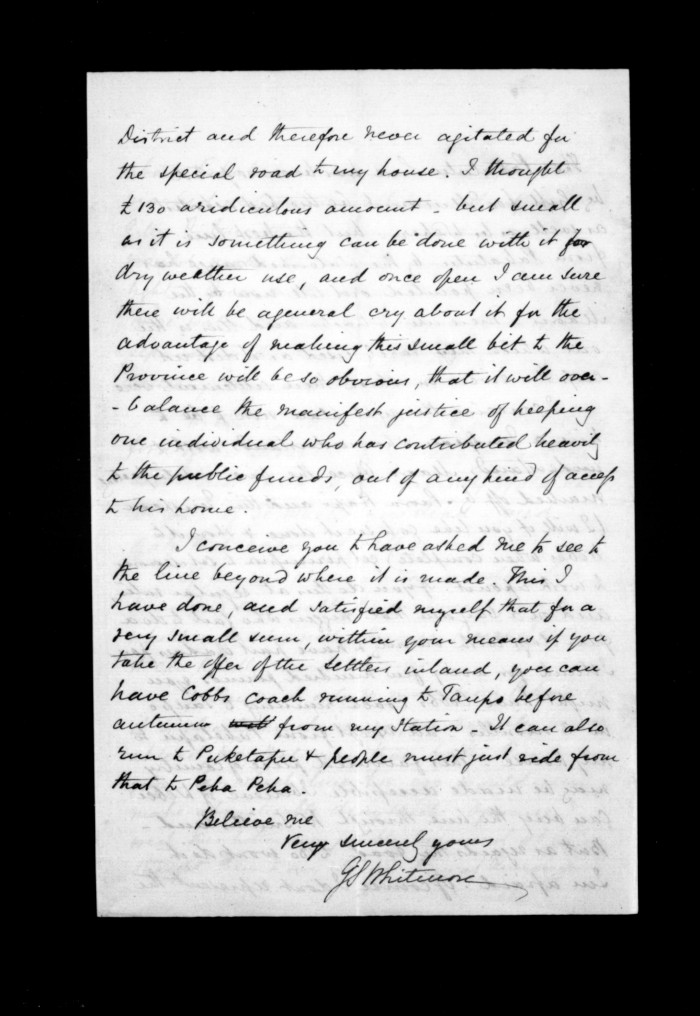 District and therefore never agitated for
the special road to my house. I thought
£130 a ridiculous amount - but small
as it is something can be done with it for
dry weather use, and once open I am sure
there will be a general cry about it for the
advantage of making this small bit to the
Province will be so obvious, that it will over-
-balance the manifest justice of keeping
one individual who has contributed heavily
to the public funds, out of any kind of access
to his home.
I conceive you to have asked me to see to
the line beyond where it is made. This I
have done, and satisfied myself that for a
very small sum, within your means if you
take the offer of the settlers inland, you can
have Cobbs coach running to Taupo before
autumn from my Station - It can also
run to Puketapu & people must just ride from
that to Peka Peka.
Believe me
Very sincerely yours
GS Whitmore